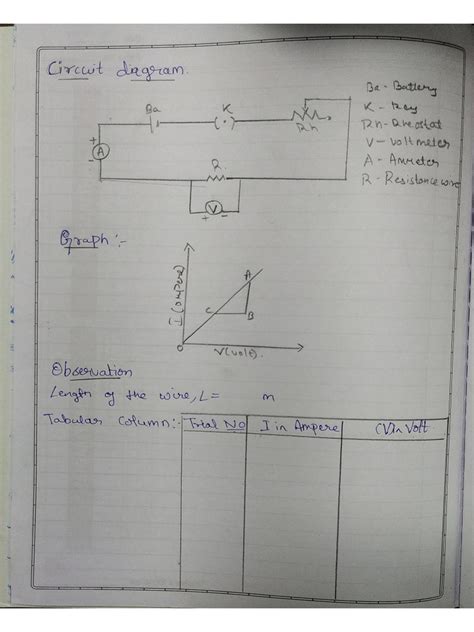 Circuit diagram.
Ba
K
Rh
Ba - Battery
K - Key
Rh - Rheostat
V - Voltmeter
A - Ammeter
R - Resistance wire
+
A
-
R
+ V -
Graph :-
I (ampere)
A
C
B
O
V(volt).
Observation
Length of the wire, L = m
Tabular Column:- Trial No I in Ampere (V)in Volt